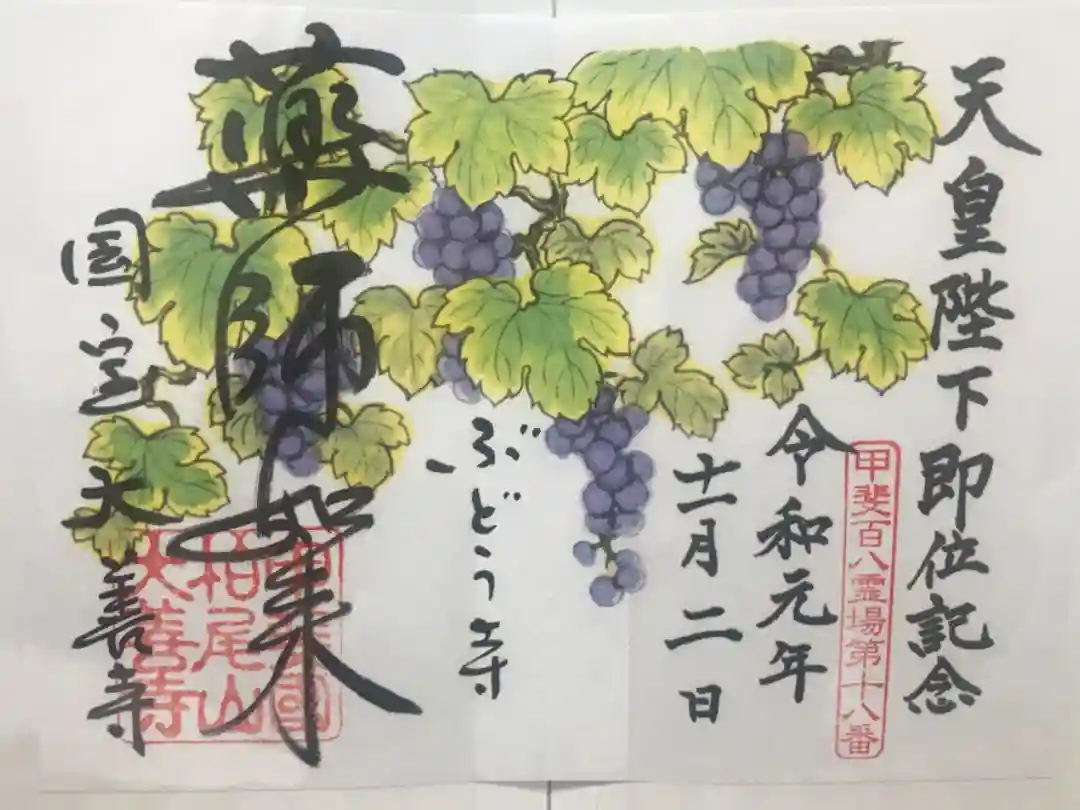 天皇陛下即位記念
甲斐百八霊場第十八番
令和元年
十一月二日
ぶどう寺
薬師如来
甲斐國
柏尾山
大善寺
国宝 大善寺